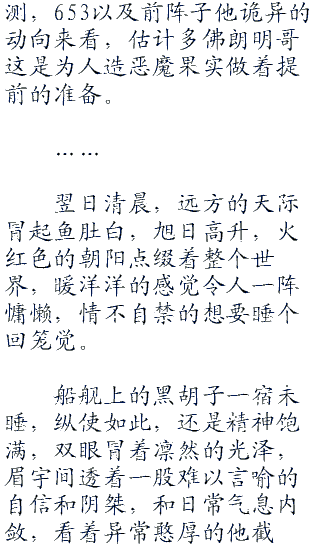 测，653以及前阵子他诡异的
动向来看，估计多佛朗明哥
这是为人造恶魔果实做着提
前的准备。
……
翌日清晨，远方的天际
冒起鱼肚白，旭日高升，火
红色的朝阳点缀着整个世
界，暖洋洋的感觉令人一阵
慵懒，情不自禁的想要睡个
回笼觉。
船舰上的黑胡子一宿未
睡，纵使如此，还是精神饱
满，双眼冒着凛然的光泽，
眉宇间透着一股难以言喻的
自信和阴桀，和日常气息内
敛，看着异常憨厚的他截